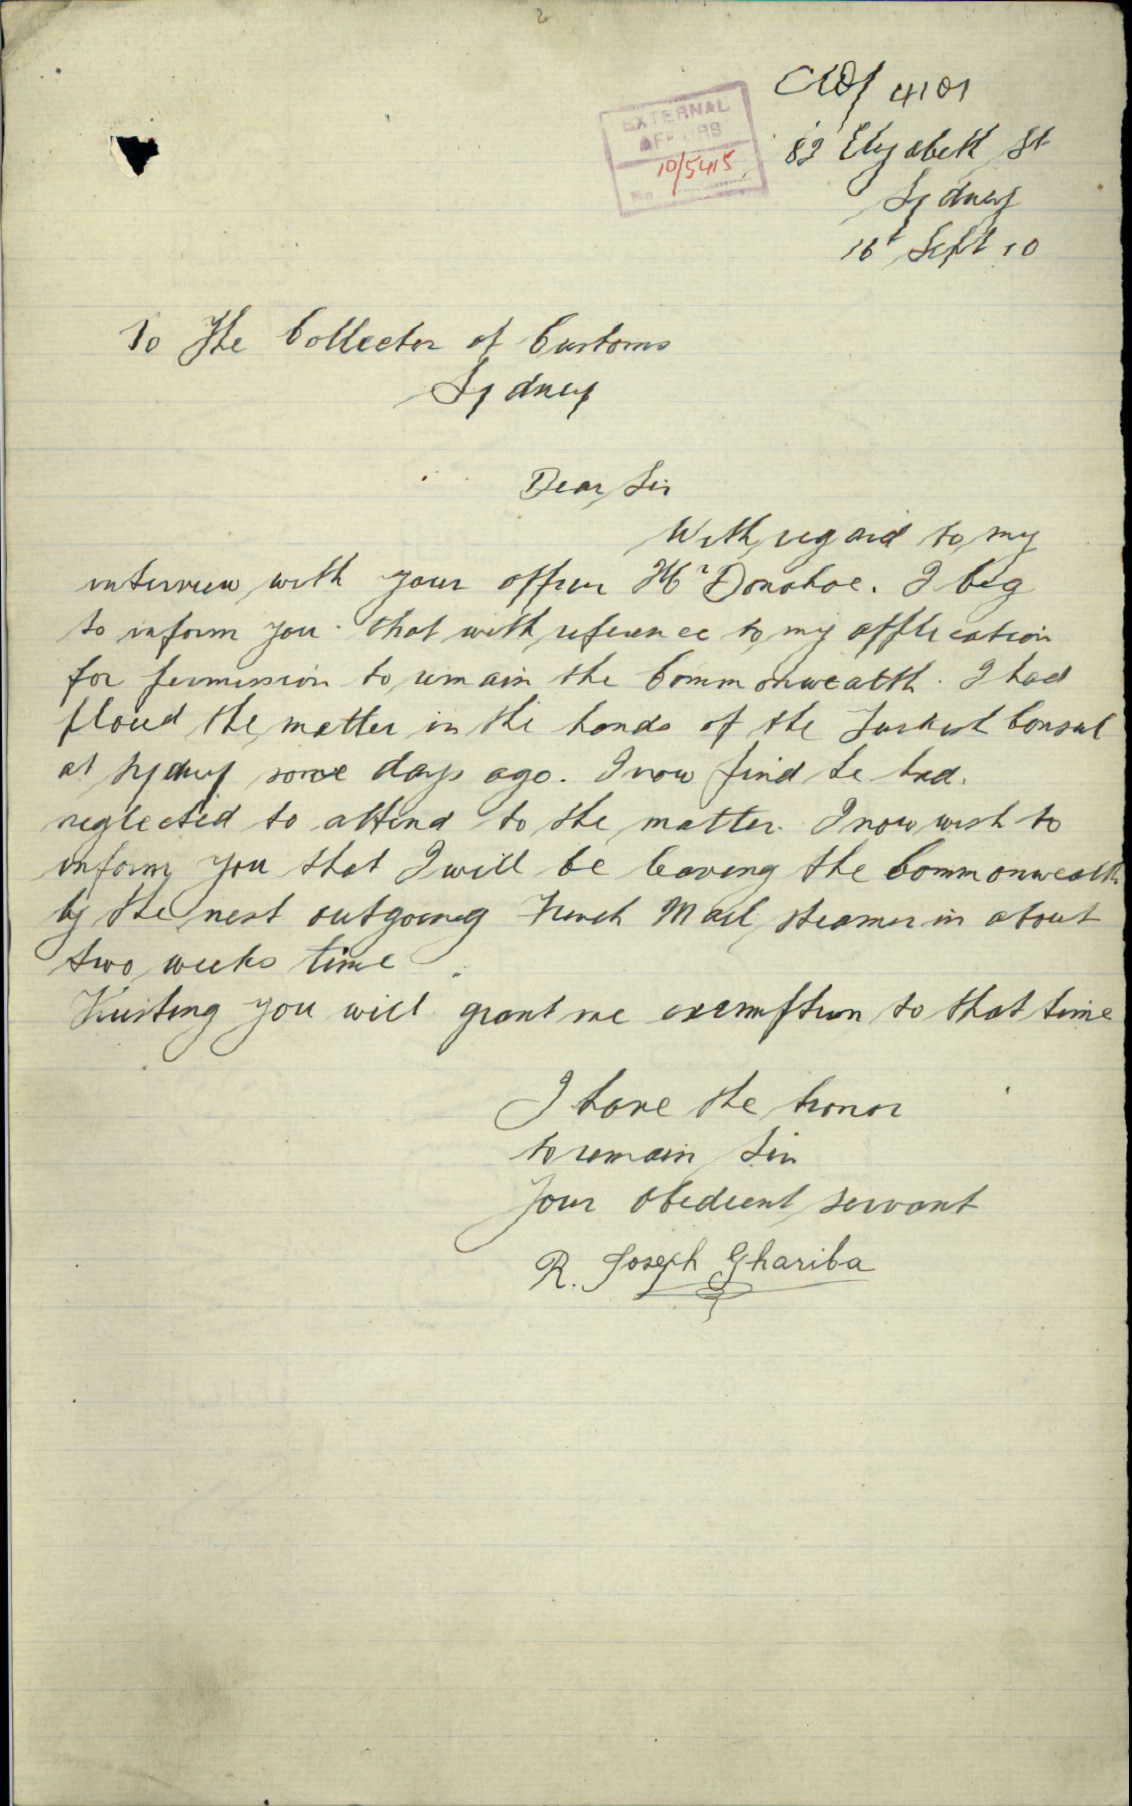 4101
EXTERNAL
AFFAIRS
10/5415
No
82 Elizabeth St
Sydney
16t Sept 10
To The Collector of Customs
Sydney
Dear Sir
With regard to my
interview with your officer Mr Donohoe. I beg
to inform you that with reference to my application
for permission to remain the Commonwealth. I had
placed the matter in the hands of the Turkish Consul
at Sydney some days ago. I now find he had
neglected to attend to the matter. I now wish to
inform you that I will be leaving the Commonwealth
by the next outgoing French Mail steamer in about
two weeks time
Trusting you will grant me exemption to that time
I have the honor
to remain Sir
Your obedient servant
R. Joseph Ghariba